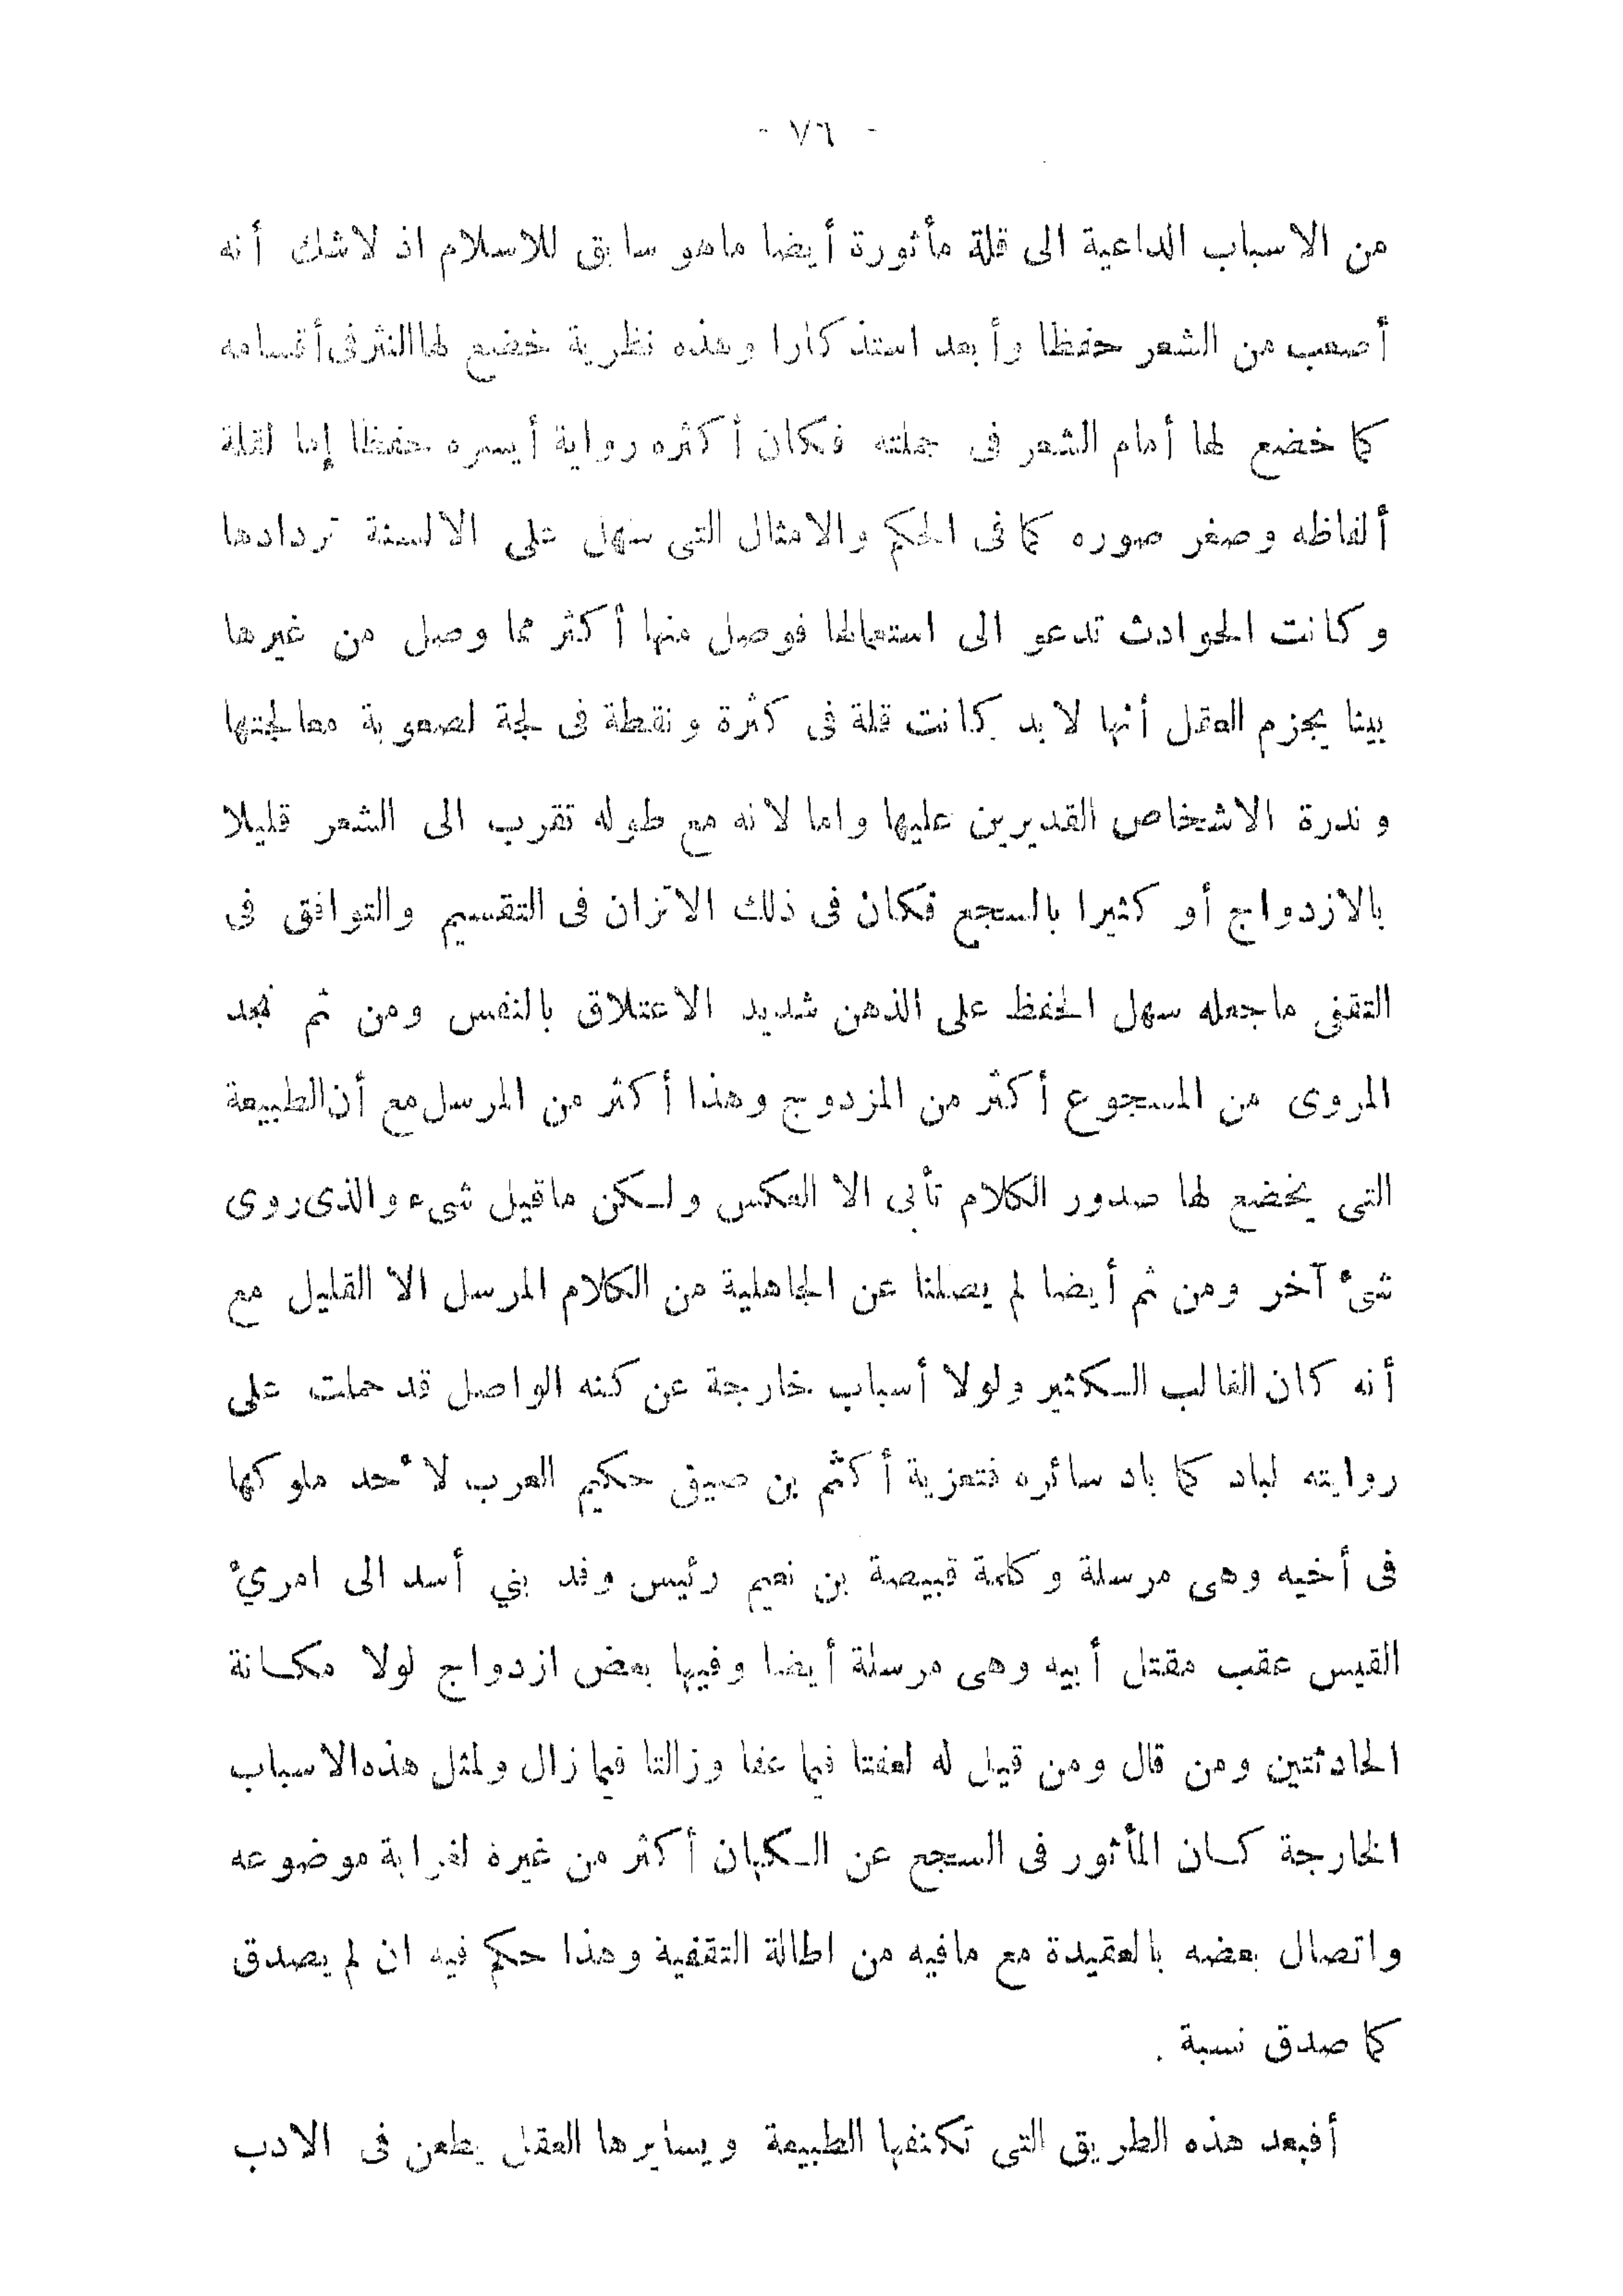 - ٧٦ -
من الاسباب الداعية الى قلة مأثورة أيضا ماهو سابق للاسلام اذ لاشك أنه
أصعب من الشعر حفظا وأبعد استذكارا وهذه نظرية خضع لها النثر فى أقسامه
كما خضع لها أمام الشعر فى جملته فكان أكثره رواية أيسره حفظا إما لقلة
ألفاظه وصغر صوره كما فى الحكم والامثال التى سهل على الالسنة تردادها
وكانت الحوادث تدعو الى استعمالها فوصل منها أكثر مما وصل من غيرها
بينا يجزم العقل أنها لابد كانت قلة فى كثرة ونقطة فى لجة لصعوبة معالجتها
وندرة الاشخاص القديرين عليها واما لانه مع طوله تقرب الى الشعر قليلا
بالازدواج أو كثيرا بالسجع فكان فى ذلك الاتزان فى التقسيم والتوافق فى
التقفى ماجعله سهل الحفظ على الذهن شديد الاعتلاق بالنفس ومن ثم نجد
المروى من المسجوع أكثر من المزدوج وهذا أكثر من المرسل مع أن الطبيعة
التى يخضع لها صدور الكلام تأبى الا العكس ولكن ماقيل شىء والذى روى
شىء آخر ومن ثم أيضا لم يصلنا عن الجاهلية من الكلام المرسل الا القليل مع
أنه كان الغالب الكثير ولولا أسباب خارجة عن كنه الواصل قد حملت على
روايته لباد كما باد سائره فتعزية أكثم بن صيفى حكيم العرب لأحد ملوكها
فى أخيه وهى مرسلة وكلمة قبيصة بن نعيم رئيس وفد بني أسد الى امرئ
القيس عقب مقتل أبيه وهى مرسلة أيضا وفيها بعض ازدواج لولا مكانة
الحادثتين ومن قال ومن قيل له لعفتا فيما عفا وزالتا فيما زال ولمثل هذه الاسباب
الخارجة كان المأثور فى السجع عن الكهان أكثر من غيره لغرابة موضوعه
واتصال بعضه بالعقيدة مع مافيه من اطالة التقفية وهذا حكم فيه ان لم يصدق
كما صدق نسبة .
أفبعد هذه الطريق التى تكنفها الطبيعة ويسايرها العقل يطعن فى الادب